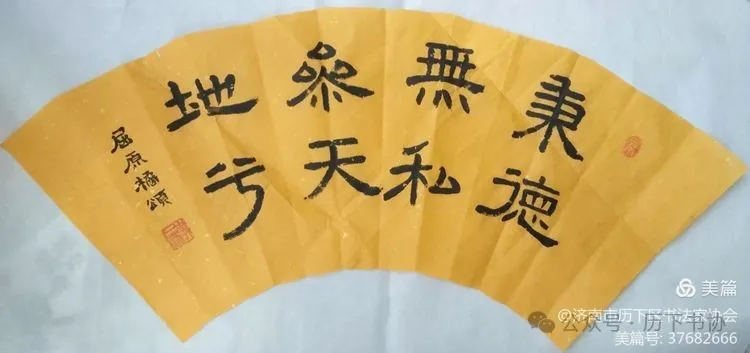 秉德
無私
參天
地兮
屈原橘頌
美篇
@济南市历下区书法家协会
公众号·历下书协
美篇号: 37682666